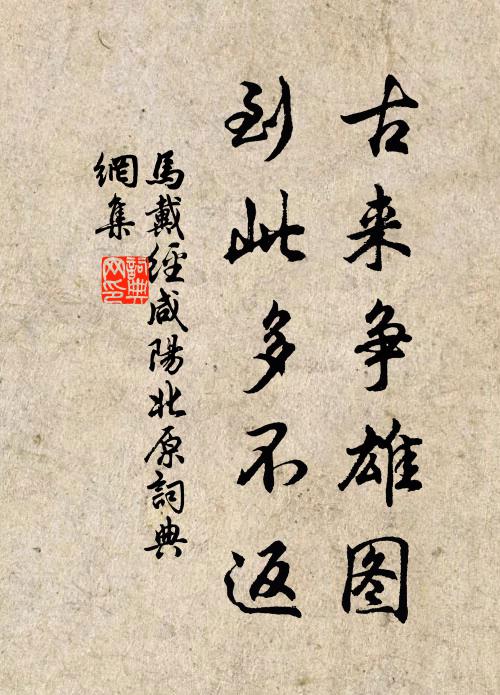 古来争雄图
到此多不返
馬戴經咸陽北原詞典
網集
詞典
网印